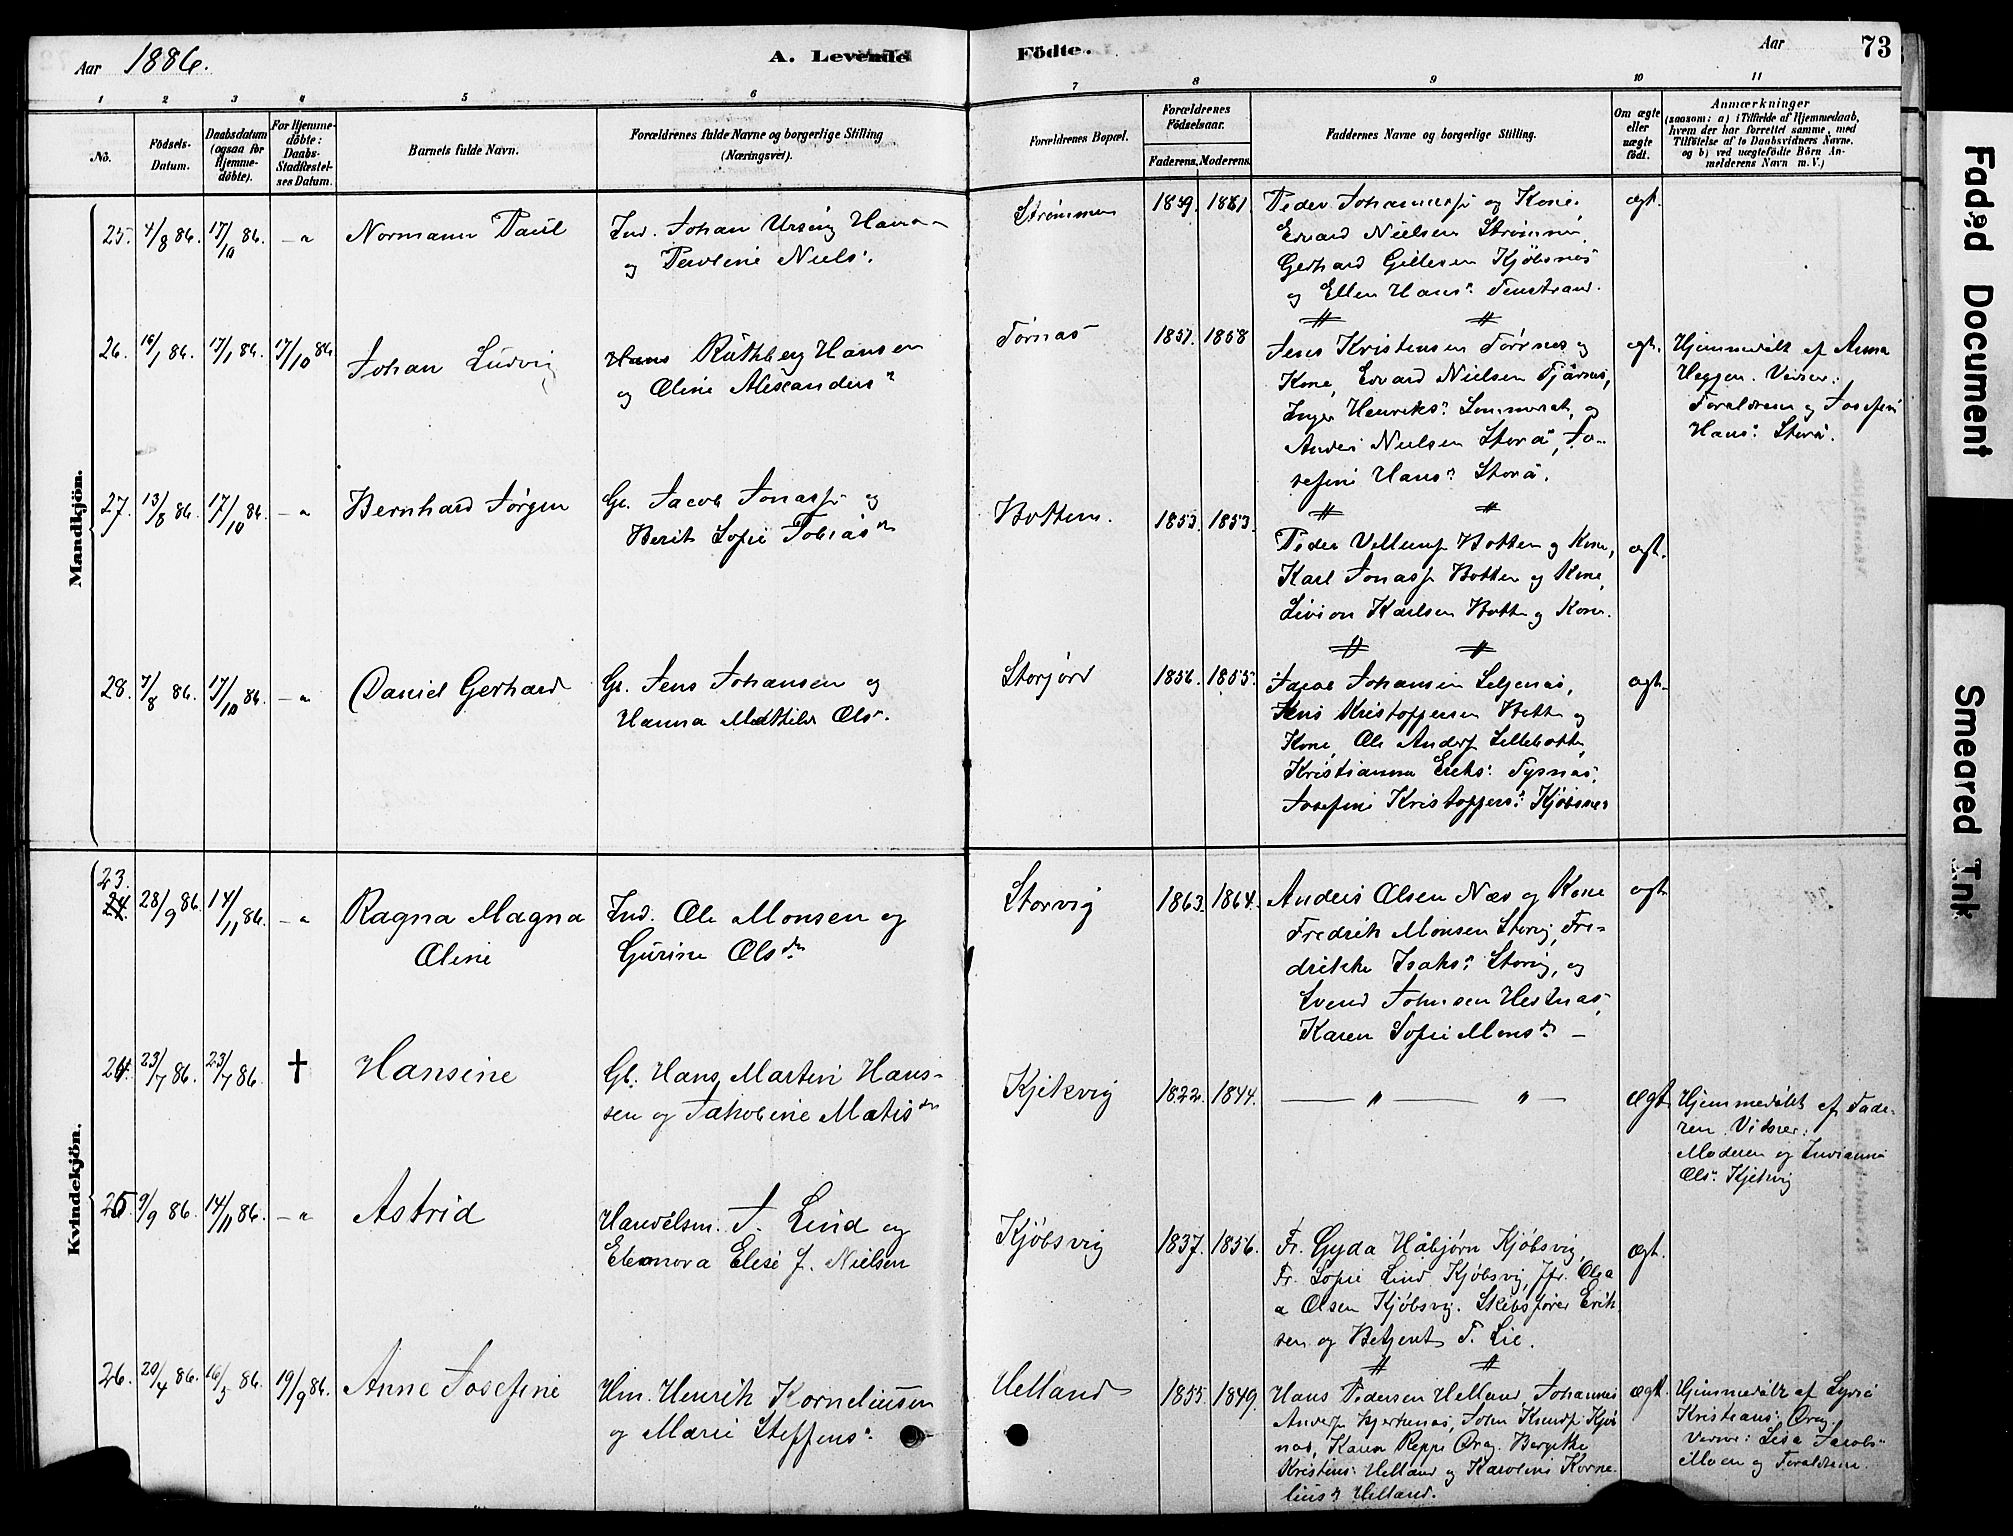 Aar 1886. A. Levende
Födte. Aar 73
1 2 3 4 5 6
7 8 9 10 11
No.
Födsels-
Datum.
Daabsdatum
(ogsaa for
Hjemme-
döbte).
For Hjemme-
döbte:
Daabs-
Stadfæstel-
ses Datum.
Barnets fulde Navn.
Forældrenes fulde Navne og borgerlige Stilling
(Næringsvei).
Forældrenes Bopæl.
Forældrenes
Födselsaar.
Faderens. Moderens.
Faddernes Navne og borgerlige Stilling.
Om ægte
eller
uægte
födt.
Anmærkninger
(saasom: a) i Tilfælde af Hjemmedaab,
hvem der har forrettet samme, med
Tilföielse af to Daabsvidners Navne,
og b) ved uægtefödte Börn An-
melderens Navn m. V.)
Mandkjön.
25. 4/8 86. 17/10 86. -"
Normann Paul
Ind. Johan Ursin Hans-
og Pauline Niels:
Strømmen 1859. 1861.
Peder Johanness. og Kone.
Edvard Nielsen Strømmen,
Gerhard Gillesen Kjöbsnäs
og Ellen Hans: Finstrand.
ægt.
26. 16/1 86. 17/1 86. 17/10 86.
Johan Ludvig
Hans Ruthberg Hansen
og Oline Alexanders:
Tørnäs 1857. 1858
Jens Kristensen Tørnes og
Kone, Edvard Nielsen Tjärnes,
Inger Henriks: Sommerset, og
Anders Nielsen Storå, Jo-
sefine Hans: Storå.
ægt.
Hjemmedøbt af Anna
Heggen. Vidner:
Foraldrene og Josefine
Hans: Storå.
27. 13/8 86. 17/10 86. -"
Bernhard Jørgen
Gl. Jacob Jonass. og
Berit Sofie Tobias dn
Botten. 1853. 1853.
Peder Villums. Botten og Kone,
Karl Jonass. Botten og Kone,
Sivion Karlsen Botten og Kone.
ægt.
28. 7/8 86. 17/10 86. -"
Daniel Gerhard
Gl. Jens Johansen og
Hanna Mathilde Ols:
Storjord 1856. 1855.
Jacob Johansen Seljenäs,
Jens Kristoffersen Botten og
Kone, Ole Anders. Lillebotten,
Kristianna Eriks: Tysnäs,
Josefine Kristoffers: Kjöbsnes
ægt.
Kvindekjön.
23.
24. 28/9 86. 14/11 86. -"
Ragna Magna
Oline
Ind. Ole Monsen og
Gurine Ols dn
Storvig 1863. 1864.
Anders Olsen Næs og Kone
Fredrik Monsen Storvig, Fre-
drikke Isaks: Storvig, og
Svend Johnsen Hestnäs,
Karen Sofie Mons dn -
ægt.
24. 23/7 86. 23/7 86. †
Hansine
Gl. Hans Martin Hans-
sen og Jakobine Matis dn
Kjelkvig 1822. 1844. — " — " —
ægt.
Hjemmedøbt af Fade-
ren. Vidner:
Moderen og Invianna
Ols: Kjelkvig
25. 9/9 86. 14/11 86. -"
Astrid
Handelsm. J. Lind og
Eleonora Elise f. Nielsen
Kjöbsvig 1837. 1856.
Fr. Gyda Håbjørn Kjöbsvig,
Fr. Sofie Lind Kjöbsvig, Jfr. Olea
Olsen Kjöbsvig. Skibsfører Erik-
sen og Betjent P. Lie.
ægt.
26. 20/4 86. 16/5 86. 19/9 86.
Anne Josefine
Hm. Henrik Korneliussen
og Marie Steffens:
Helland 1855. 1849.
Hans Pedersen Helland, Johannes
Anders. Hjertenäs, John Knuds. Kjöbs-
näs, Karen Reppe Drag. Bergitte
Kristens: Helland og Karoline Korne-
lius dn Helland.
ægt.
Hjemmedøbt af Lydia
Kristians: Drag.
Vidner: Lisa Jacobs-
Moen og Foraldrene.
Faded Document
Smeared Ink